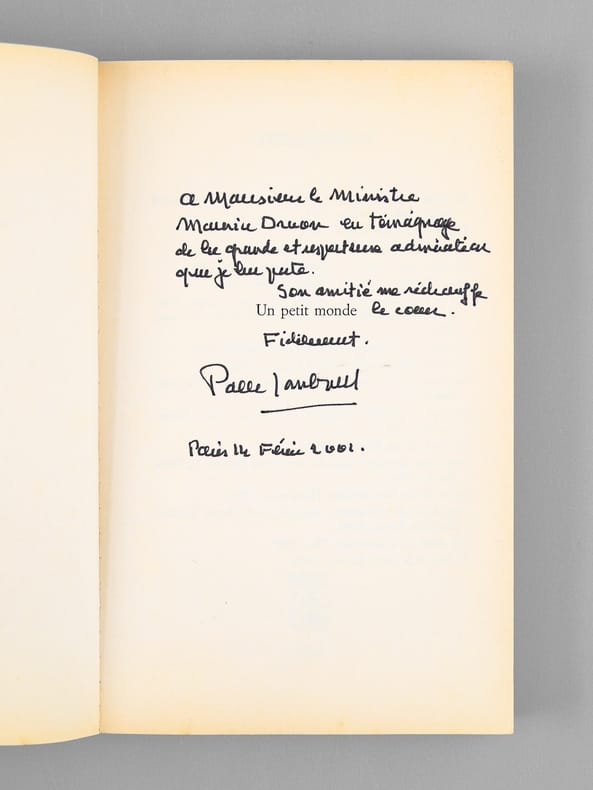 a Monsieur le Ministre
Maurice Druon en témoignage
de la grande et respectueuse admiration
que je lui porte.
Son amitié me réchauffe
Un petit monde le coeur.
Fidèlement.
Paris 14 Février 2001.